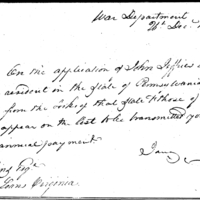 War Department
26th Dec.
On the application of John Jeffries
resident in the State of Pennsylvania
from the books of that State to those of
appear on the list to be transmitted
annual payment.
I am
Esqr.
Virginia